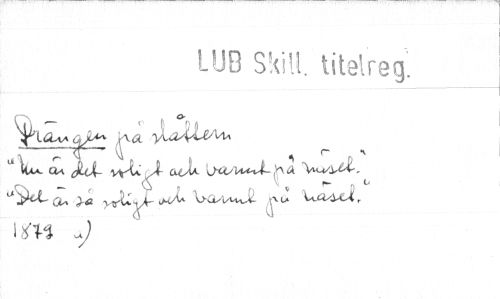 LUB Skill. titelreg.
Drängen på slåttern
"Nu är det soligt och varmt på näset."
"Det är så soligt och varmt på näset."
1879 u)